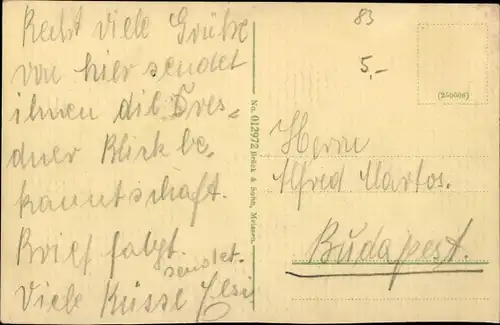 Recht viele Grüße
von hier sendet
ihnen die Dres-
dner Blick be-
kanntschaft.
Brief folgt.
sendet
Viele Küsse
No. 012972 Brück & Sohn, Meissen.
83
5,-
(250606)
Herrn
Alfred Martos.
Budapest.